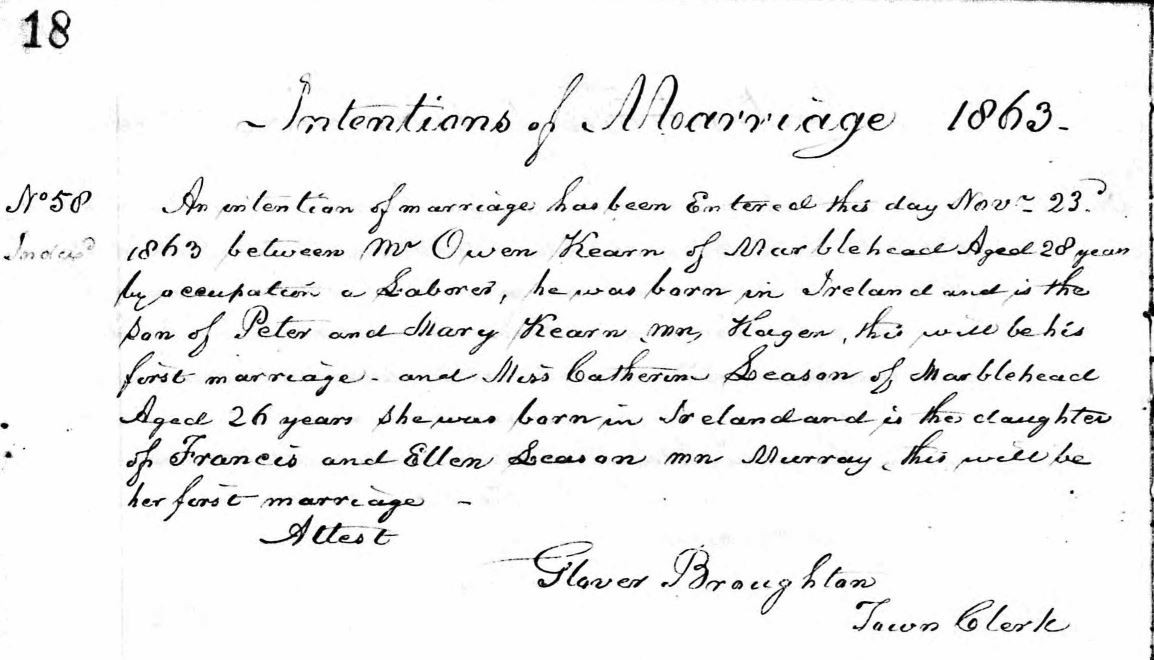 18
Intentions of Marriage 1863.
No 58 An intention of marriage has been Entered this day Novr 23d
Indexd 1863 between Mr Owen Kearn of Marblehead Aged 28 years
by occupation a Laborer, he was born in Ireland and is the
son of Peter and Mary Kearn mn, Hagen, this will be his
first marriage - and Miss Catherine Leason of Marblehead
Aged 26 years she was born in Ireland and is the daughter
of Francis and Ellen Leason mn Murray, this will be
her first marriage -
Attest
Glover Broughton
Town Clerk